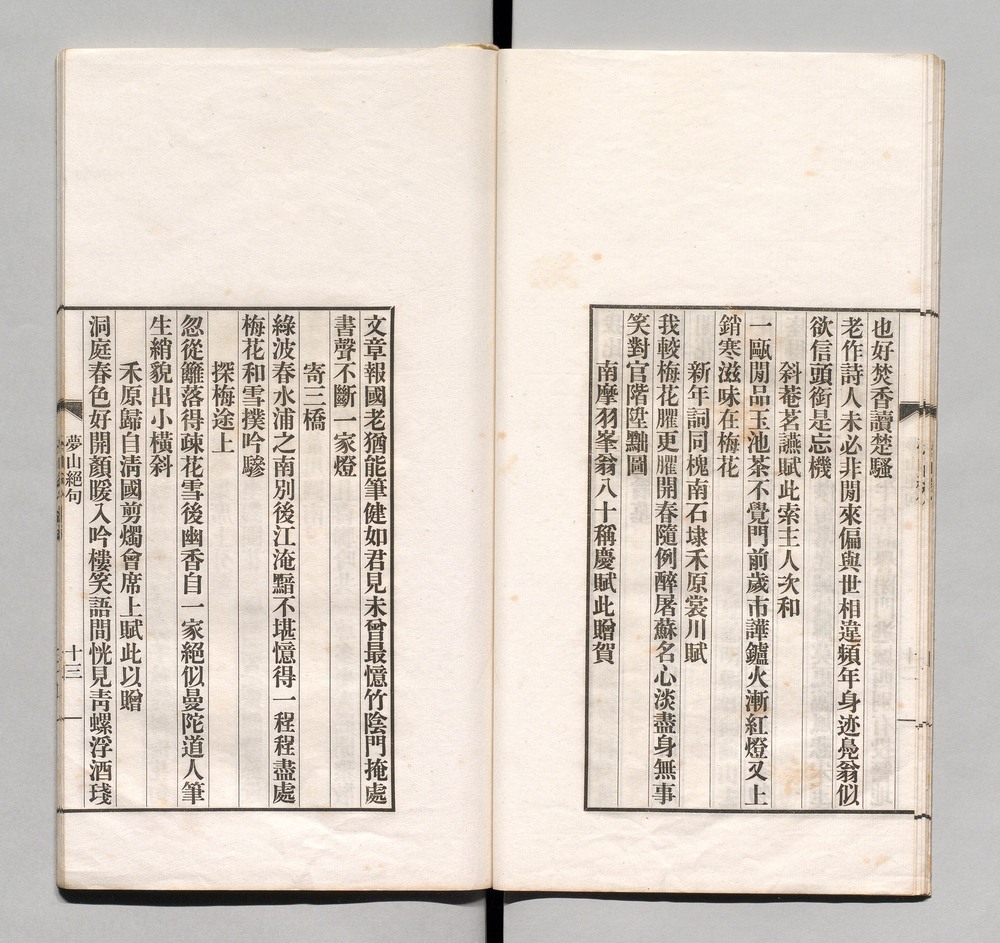 也好焚香讀楚騷
老作詩人未必非閒來偏與世相違頻年身迹鳧翁似
欲信頭銜是忘機
斜菴茗讌賦此索主人次和
一甌閒品玉池茶不覺門前歲市譁鑪火漸紅燈又上
銷寒滋味在梅花
新年詞同槐南石埭禾原裳川賦
我較梅花臞更臞開春隨例醉屠蘇名心淡盡身無事
笑對官階陞黜圖
南摩羽峯翁八十稱慶賦此贈賀
文章報國老猶能筆健如君見未曾最憶竹陰門掩處
書聲不斷一家燈
寄三橋
綠波春水浦之南別後江淹黯不堪憶得一程程盡處
梅花和雪撲吟驂
探梅途上
忽從籬落得疎花雪後幽香自一家絕似曼陀道人筆
生綃貌出小橫斜
禾原歸自淸國剪燭會席上賦此以贈
洞庭春色好開顏暖入吟樓笑語間恍見靑螺浮酒琖
夢山絕句
十三